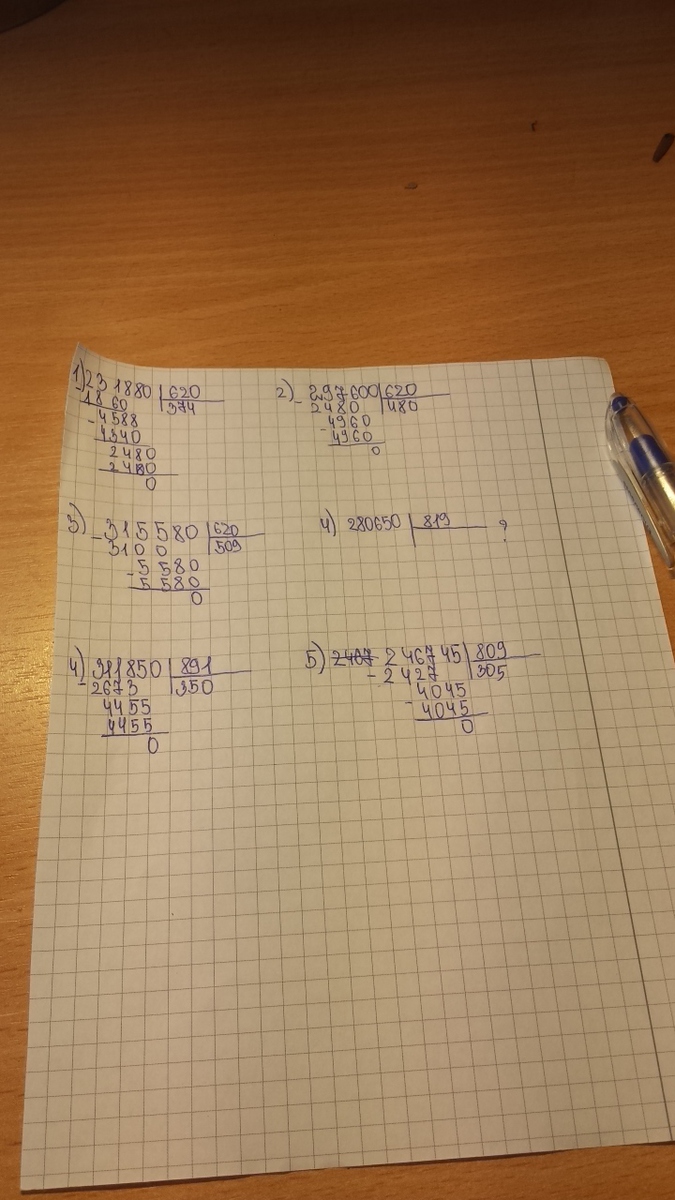 1) 231880 620
- 1860 374
- 4588
4340
2480
2480
0
2) - 297600 620
2480 480
- 4960
4960
0
3) - 315580 620
3100 509
- 5580
5580
0
4) 280650 819 ?
4) - 311850 891
2673 350
4455
4455
0
5) 2467 - 246745 809
2427 305
- 4045
4045
0